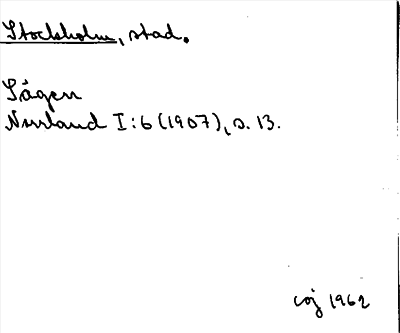 Stockholm, stad.
Sågen
Norrland I:6 (1907), s. 13.
coj 1962